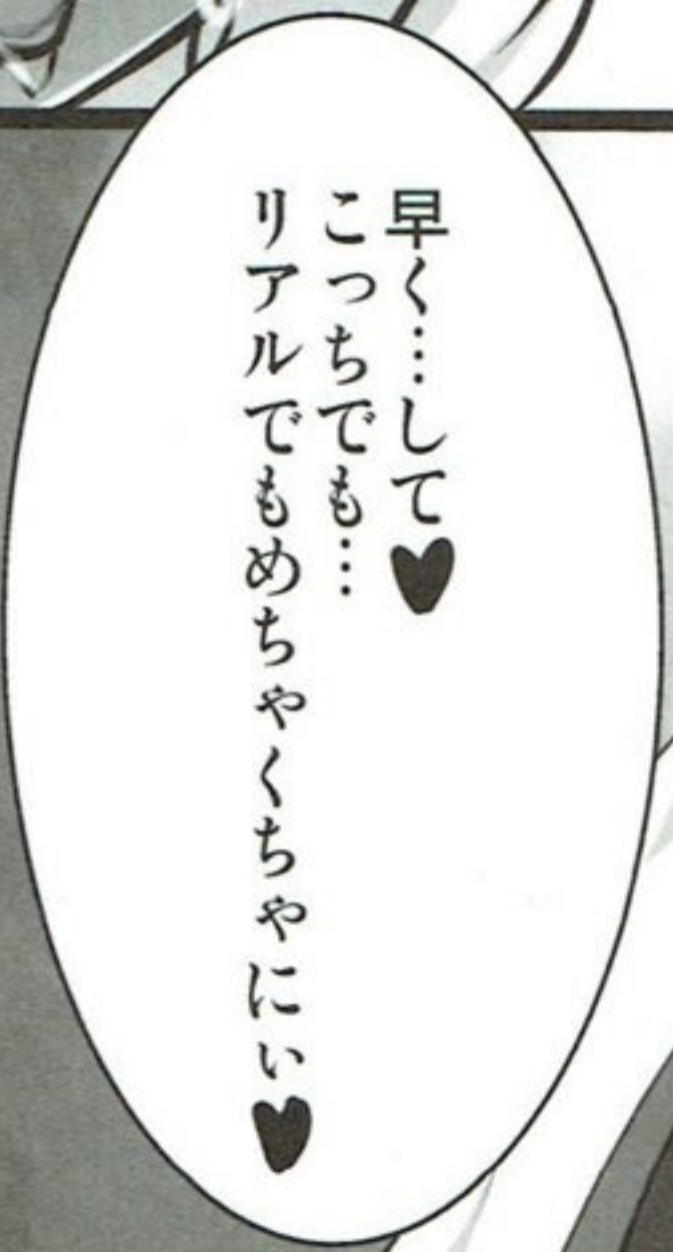 早く…して♥
こっちでも…
リアルでもめちゃくちゃにぃ♥